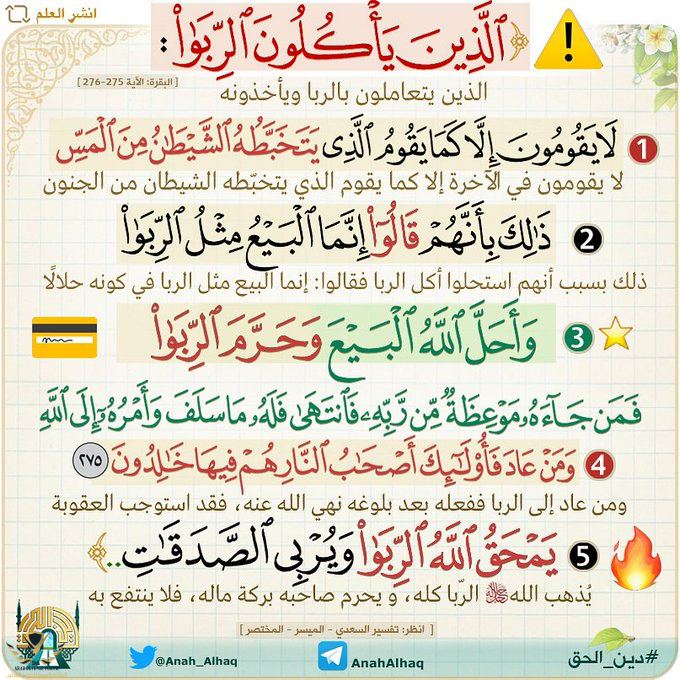 انشر العلم
﴿ٱلَّذِينَ يَأۡكُلُونَ ٱلرِّبَوٰاْ:
[ البقرة: الآية 275-276 ]
الذين يتعاملون بالربا ويأخذونه
1 لَا يَقُومُونَ إِلَّا كَمَا يَقُومُ ٱلَّذِي يَتَخَبَّطُهُ ٱلشَّيۡطَٰنُ مِنَ ٱلۡمَسِّ
لا يقومون في الآخرة إلا كما يقوم الذي يتخبّطه الشيطان من الجنون
2 ذَٰلِكَ بِأَنَّهُمۡ قَالُوٓاْ إِنَّمَا ٱلۡبَيۡعُ مِثۡلُ ٱلرِّبَوٰاْ
ذلك بسبب أنهم استحلوا أكل الربا فقالوا: إنما البيع مثل الربا في كونه حلالًا
3 وَأَحَلَّ ٱللَّهُ ٱلۡبَيۡعَ وَحَرَّمَ ٱلرِّبَوٰاْ
فَمَن جَآءَهُۥ مَوۡعِظَةٞ مِّن رَّبِّهِۦ فَٱنتَهَىٰ فَلَهُۥ مَا سَلَفَ وَأَمۡرُهُۥٓ إِلَى ٱللَّهِ
4 وَمَنۡ عَادَ فَأُوْلَٰٓئِكَ أَصۡحَٰبُ ٱلنَّارِ هُمۡ فِيهَا خَٰلِدُونَ ٢٧٥
ومن عاد إلى الربا ففعله بعد بلوغه نهي الله عنه، فقد استوجب العقوبة
5 يَمۡحَقُ ٱللَّهُ ٱلرِّبَوٰاْ وَيُرۡبِي ٱلصَّدَقَٰتِ..﴾
يُذهب الله ﷻ الرّبا كله، و يحرم صاحبه بركة ماله، فلا ينتفع به
[ انظر: تفسير السعدي - الميسر - المختصر ]
#دين_الحق
AnahAlhaq
@Anah_Alhaq